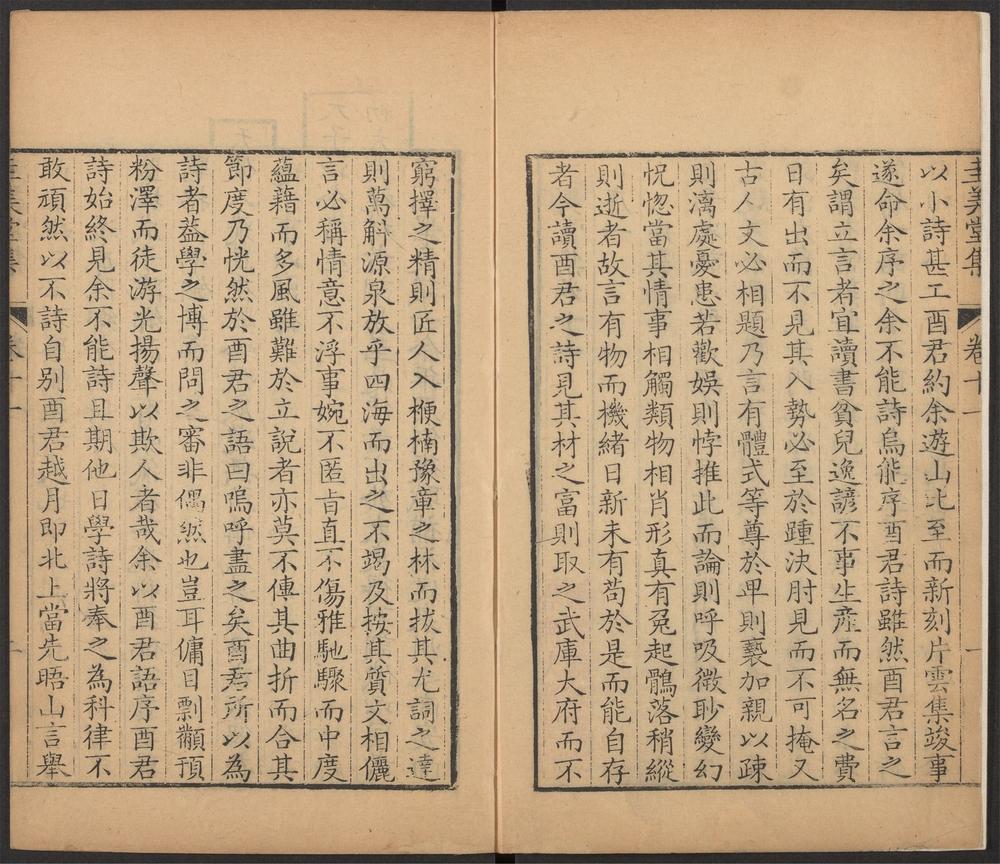 圭美堂集
卷十一
一
以小詩甚工酉君約余遊山北至而新刻片雲集竣事
遂命余序之余不能詩烏能序酉君詩雖然酉君言之
矣謂立言者宜讀書貧兒逸諺不事生產而無名之費
日有出而不見其入勢必至於踵決肘見而不可掩又
古人文必相題乃言有體式等尊於卑則褻加親以疎
則漓處憂患若歡娛則悖推此而論則呼吸微眇變幻
怳惚當其情事相觸類物相肖形真有兔起鶻落稍縱
則逝者故言有物而機緒日新未有苟於是而能自存
者今讀酉君之詩見其材之富則取之武庫大府而不
窮擇之精則匠人入楩楠豫章之林而拔其尤詞之達
則萬斛源泉放乎四海而出之不竭及按其質文相儷
言必稱情意不浮事婉不匿旨直不傷雅馳驟而中度
蘊藉而多風雖難於立說者亦莫不傳其曲折而合其
節度乃恍然於酉君之語曰嗚呼盡之矣酉君所以為
詩者葢學之博而問之審非偶然也豈耳傭目剽黼頇
粉澤而徒游光揚聲以欺人者哉余以酉君語序酉君
詩始終見余不能詩且期他日學詩將奉之為科律不
敢頑然以不詩自別酉君越月即北上當先晤山言舉
圭美堂集
卷十一
一